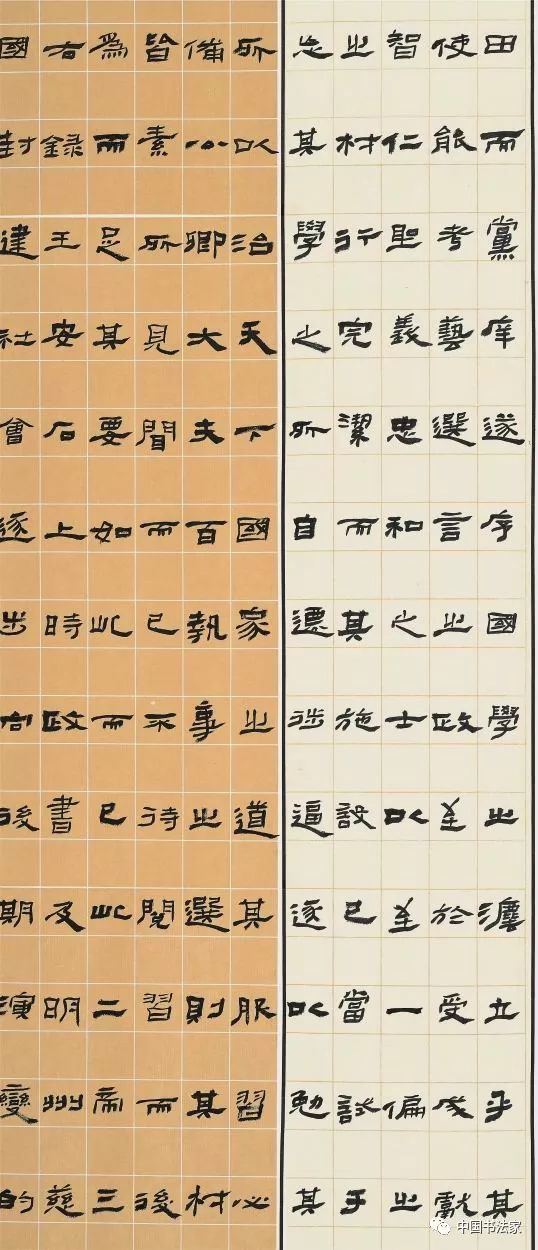 田而黨庠遂序國學之灋立乎其
使能考藝選言之政至於受成獻
智仁聖義忠和之士以至一偏之
之材行完潔而其施設已當試乎
忘其學之所自遷徙逼逐以勉其
所以治天下國家之道其服習必
備公卿大夫百執事之選則其材
皆素所見聞而已不待閱習而後
為而足其要如此而已此二帝三
右錄王安石上時政書及明州慈
國封建社會逐步向後期演變的
中国书法家